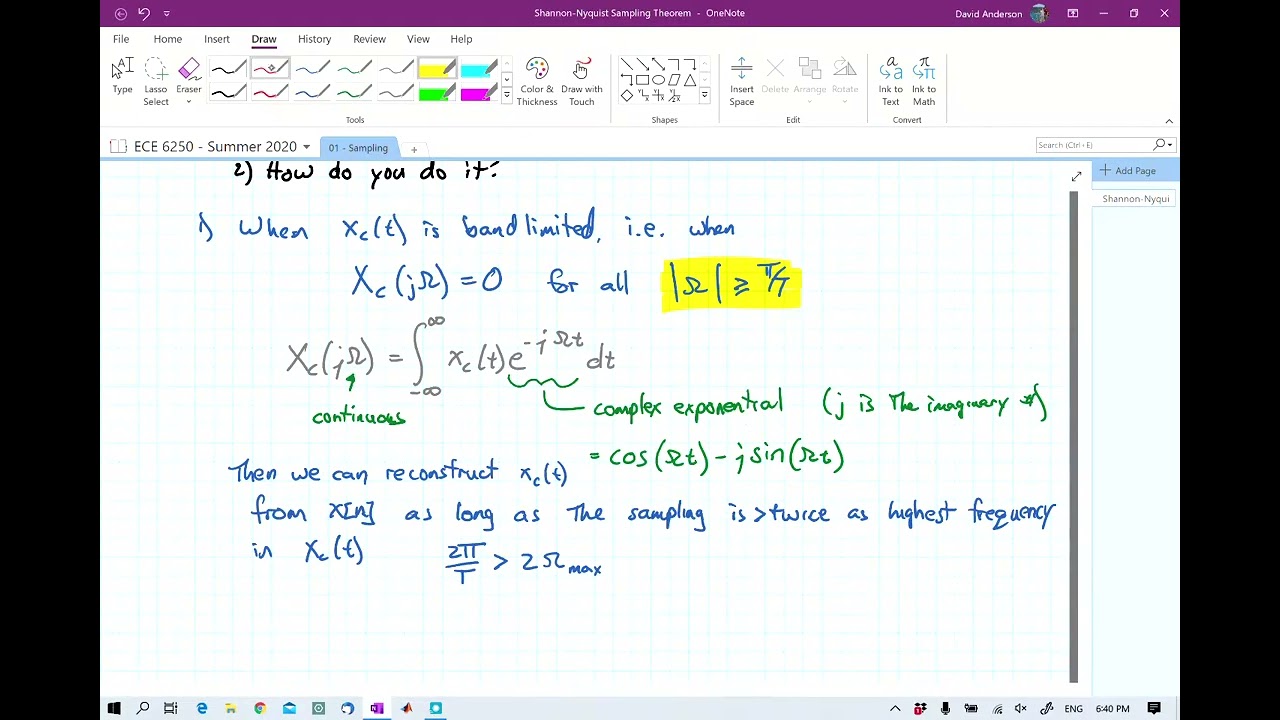 Shannon-Nyquist Sampling Theorem - OneNote
David Anderson
File Home Insert Draw History Review View Help
Type
Lasso Select
Eraser
Color & Thickness
Draw with Touch
Insert Space
Delete
Arrange
Rotate
Ink to Text
Ink to Math
Tools
Shapes
Edit
Convert
ECE 6250 - Summer 2020
01 - Sampling
Search (Ctrl+E)
Add Page
Shannon-Nyqui
2) How do you do it?
1) When x_c(t) is bandlimited, i.e. when
X_c(jΩ) = 0 for all |Ω| ≥ π/T
X_c(jΩ) = ∫_{-∞}^{∞} x_c(t) e^{-jΩt} dt
continuous
complex exponential (j is The imaginary #)
= cos(Ωt) - j sin(Ωt)
Then we can reconstruct x_c(t)
from x[n] as long as The sampling is > twice as highest frequency
in x_c(t) 2π/T > 2Ω_max
ENG 6:40 PM